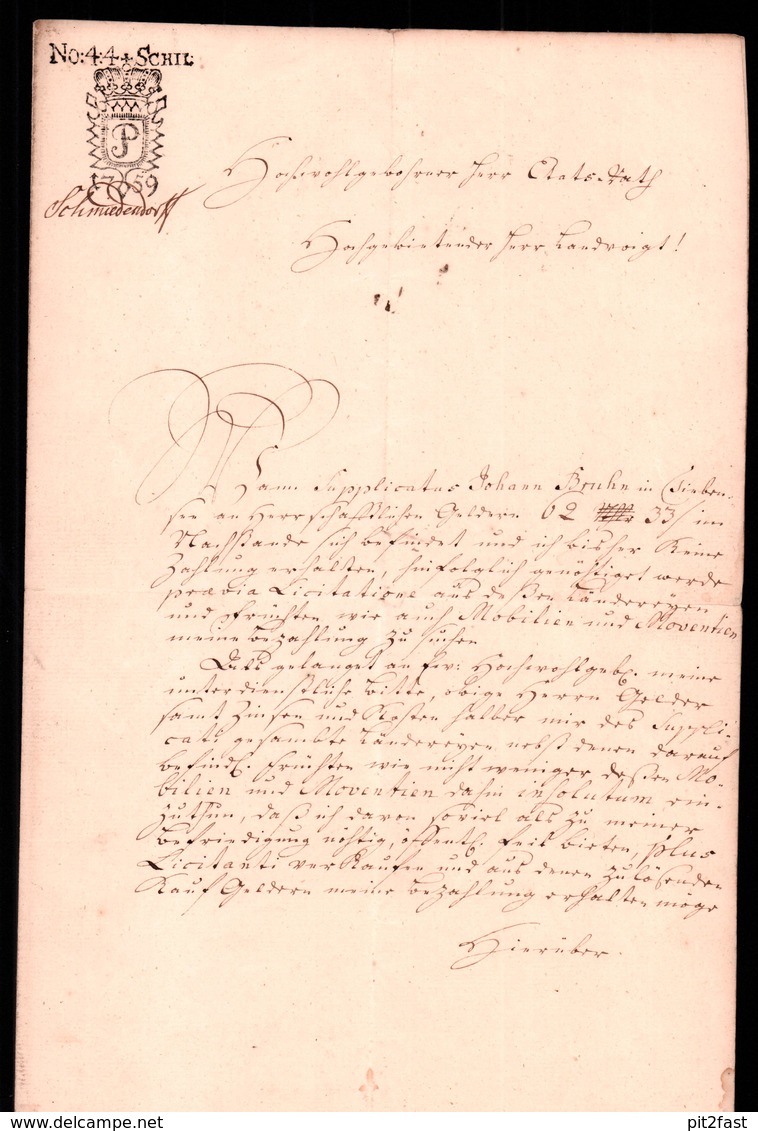 No: 4: 4 + SCHIL:
P
1759
Schmiedendorff
Hochwohlgebohrner Herr Etats-Rath
Hochgebietender Herr Landvoigt!
Wann Supplicatus Johann Bruhn in
see an Herrschafftlichen Geldern 62 33 im
Nachstande sich befindet und ich bisher Keine
Zahlung erhalten, hinfolglich genöthiget werde
præviâ Licitatione aus deßen Ländereyen
und Früchten wie auch Mobilien und Moventien
meine Bezahlung zu suchen
Als gelanget an Ew: Hochwohlgeb. meine
unterdienstliche Bitte, obige Herrn Gelder
samt Zinsen und Kosten halber mir des Suppli-
cati gesambte Ländereyen nebst denen darauf
befindl. Früchten wie nicht weniger deßen Mo-
bilien und Moventien dahin insolutum ein-
zuthun, daß ich davon soviel als zu meiner
Befriedigung nöthig, öffentl. feil bieten, plus
Licitanti verkaufen und aus denen zu lösenden
Kauf Geldern meine Bezahlung erhalten möge
Hierüber.
pit2fast